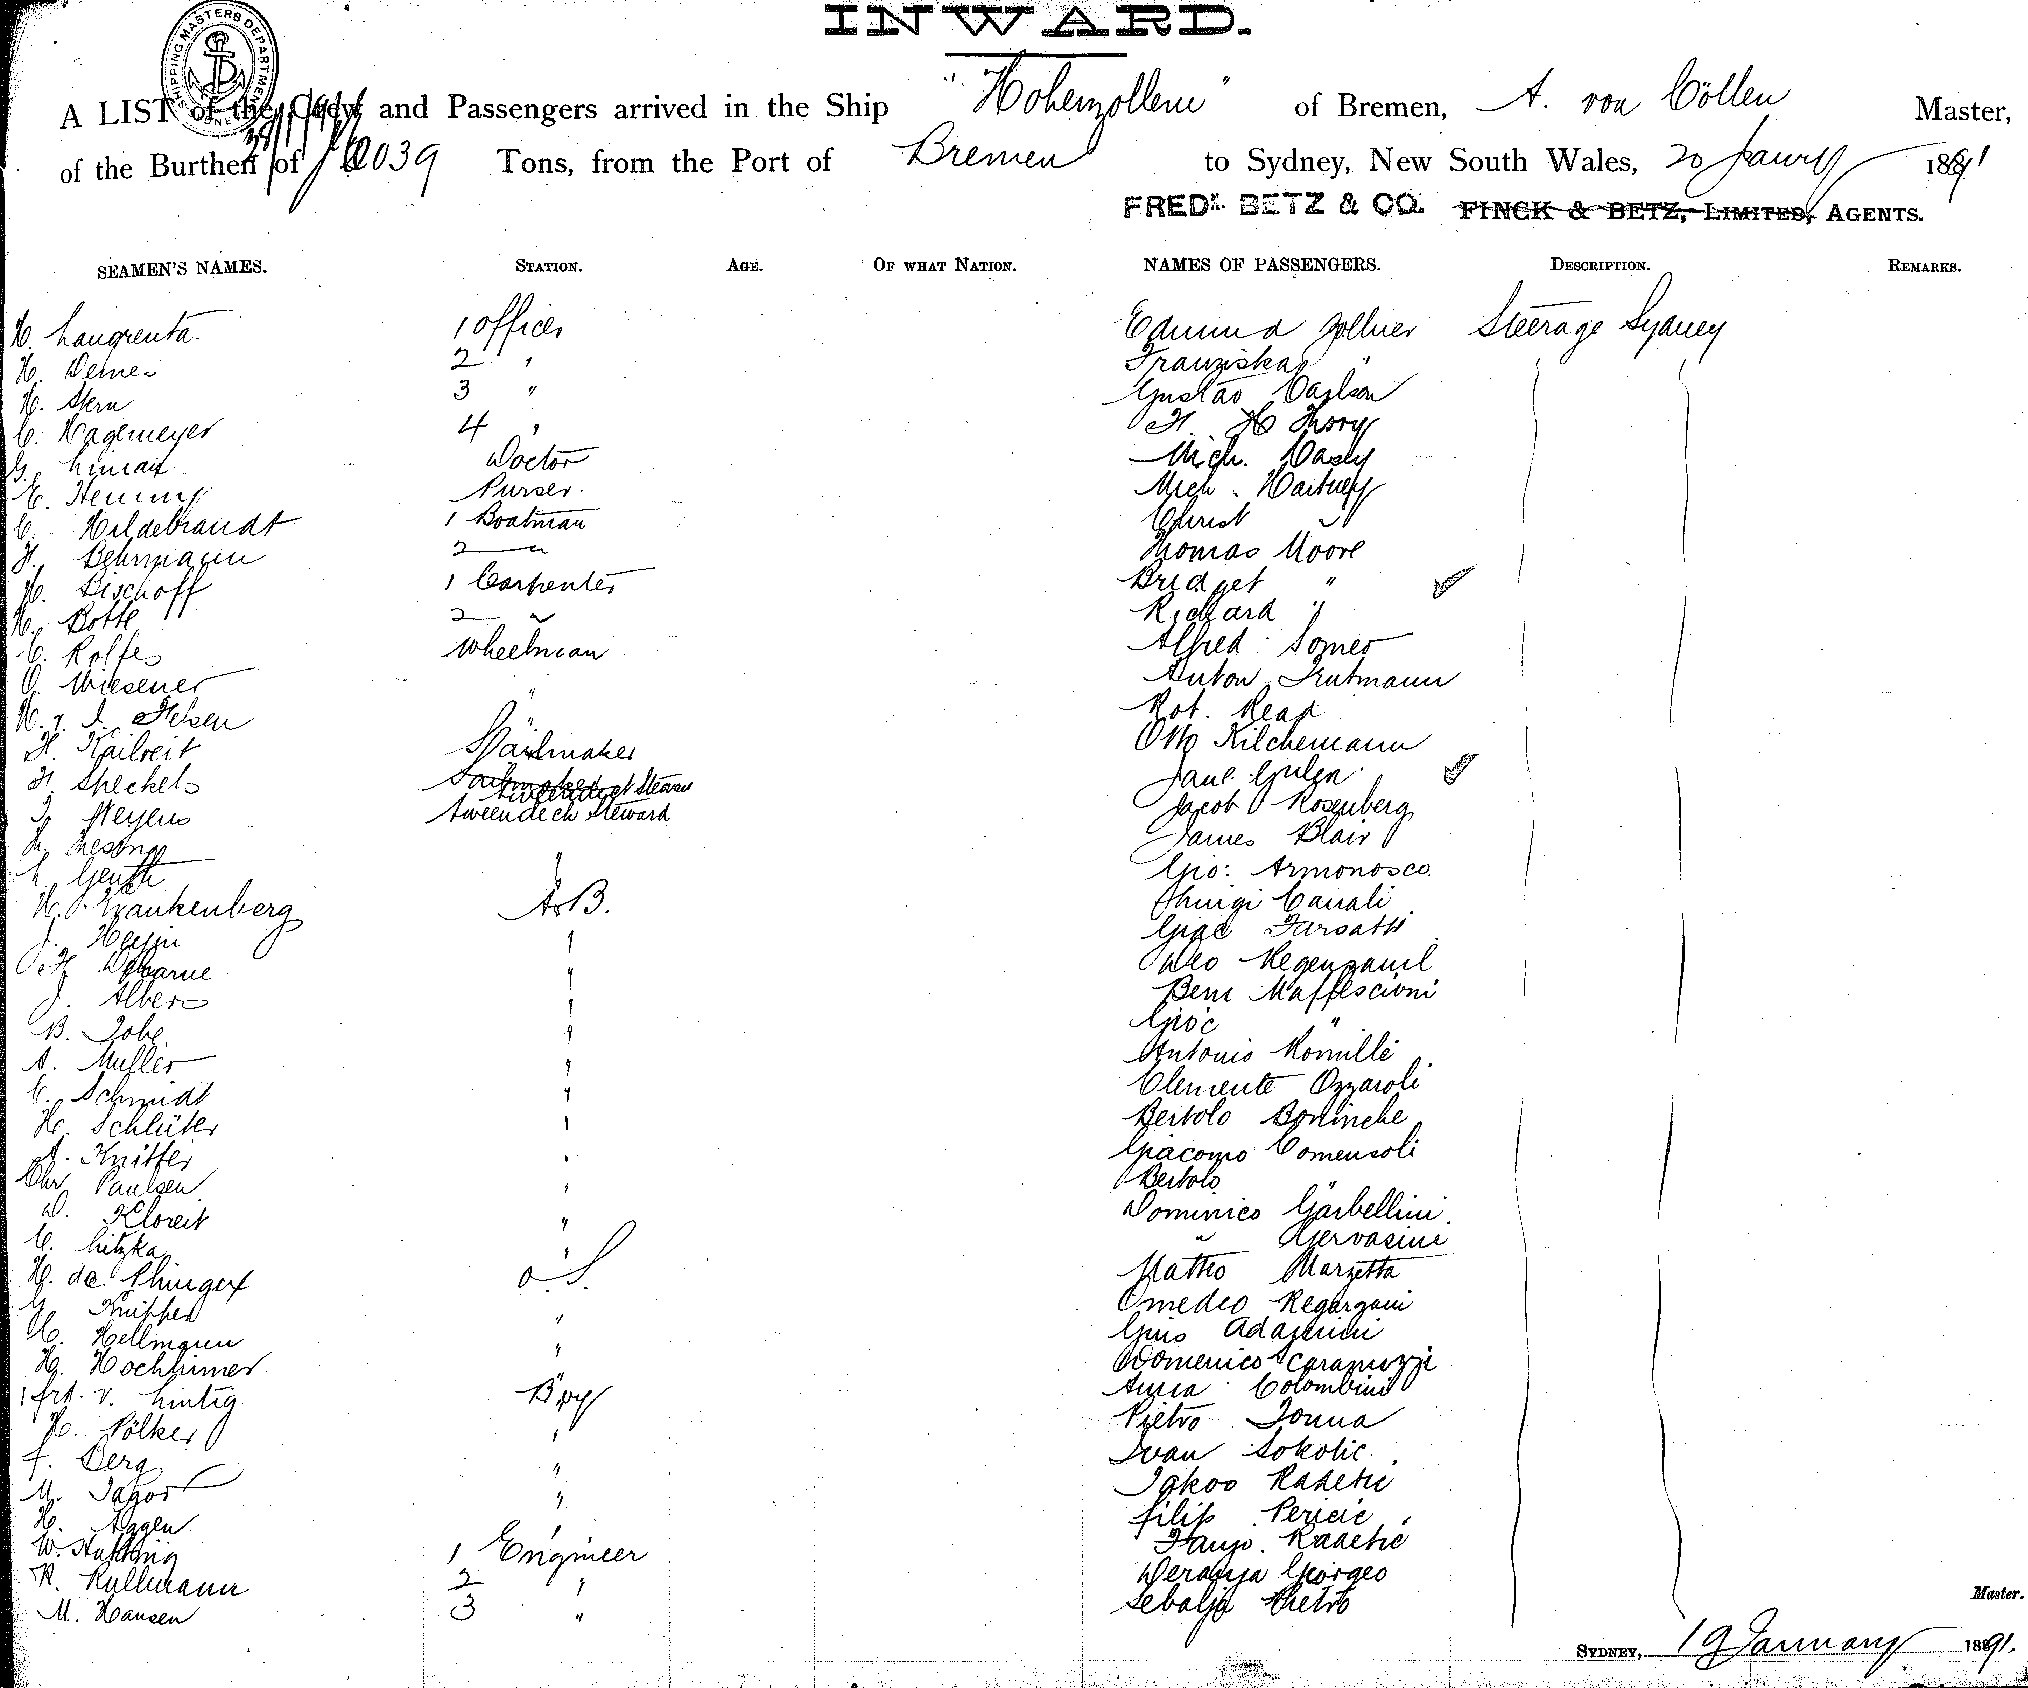 INWARD.
SHIPPING MASTERS DEPARTMENT
A LIST of the Crew and Passengers arrived in the Ship "Hohenzollern" of Bremen, A. von Cöllen Master,
of the Burthen of 2039 Tons, from the Port of Bremen to Sydney, New South Wales, 20 Janry 1891
FREDK. BETZ & CO. FINCK & BETZ, LIMITED, AGENTS.
SEAMEN'S NAMES. STATION. AGE. OF WHAT NATION. NAMES OF PASSENGERS. DESCRIPTION. REMARKS.
H. Langreuta 1 officer Edmund Zollner Steerage Sydney
H. 2 " Franziska "
H. Stern 3 " Gustav Carlson
C. Hagemeyer 4 "
G. Doctor Mich.
E. Purser. Mich. Hartney
C. Hildebrandt 1 Boatman Christ "
H. Behrmann 2 " Thomas Moore
H. Bischoff 1 Carpenter Bridget "
H. Botte 2 " Richard "
C. Rolfes Wheelman Alfred Somer
O. Wiesener " Anton Trutmann
" Rob. Read
H. Kailveit Sailmaker Otto Kilchemann
H. Speckels Jane
J. Meyens tweendeck Steward Jacob Rosenberg
" James Blair
" Gio: Armonosco
H. Frankenberg A.B. Canali
J. " Giac
" Leo
J. Albers " Beni Maffescioni
B. Tobe " Gioc "
A. Muller " Antonio Romille
C. Schmidt " Clemente Ozzaroli
H. Schlüter " Bertolo Boninche
A. Knitter " Giacomo Comensoli
Chr. Paulsen " Bertolo
D. Kloreit " Dominico Garbellini
C. Litzka " " Gervasini
H. de o. S. Matteo Marzetta
G. Knipper " Omedeo Regazzoni
H. Hellmann " Adamini
H. Hochheimer " Domenico Caramuzzi
v. Lintig Boy Colombini
H. Pölker " Pietro Tonna
F. Berg " Ivan Sokolic
M. Jagos " Jakov Radetic
H. Aggen " Filip Pericic
W. 1 Engineer Franjo. Radetic
R. Kullmann 2 " Giorgeo
M. Hansen 3 " Pietro
Master.
SYDNEY, 19 January 1891.